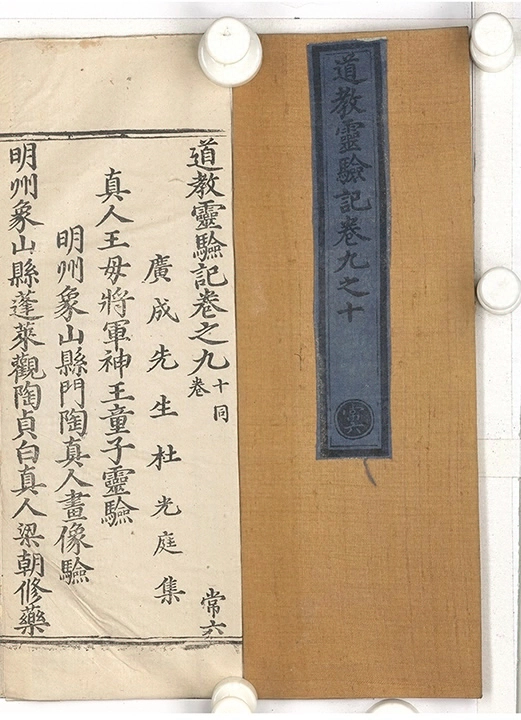 道教靈驗記卷九之十
道教靈驗記卷之九 十同卷 常六
廣成先生杜光庭集
真人王母將軍神王童子靈驗
明州象山縣門陶真人畫像驗
明州象山縣蓬萊觀陶貞白真人梁朝修藥